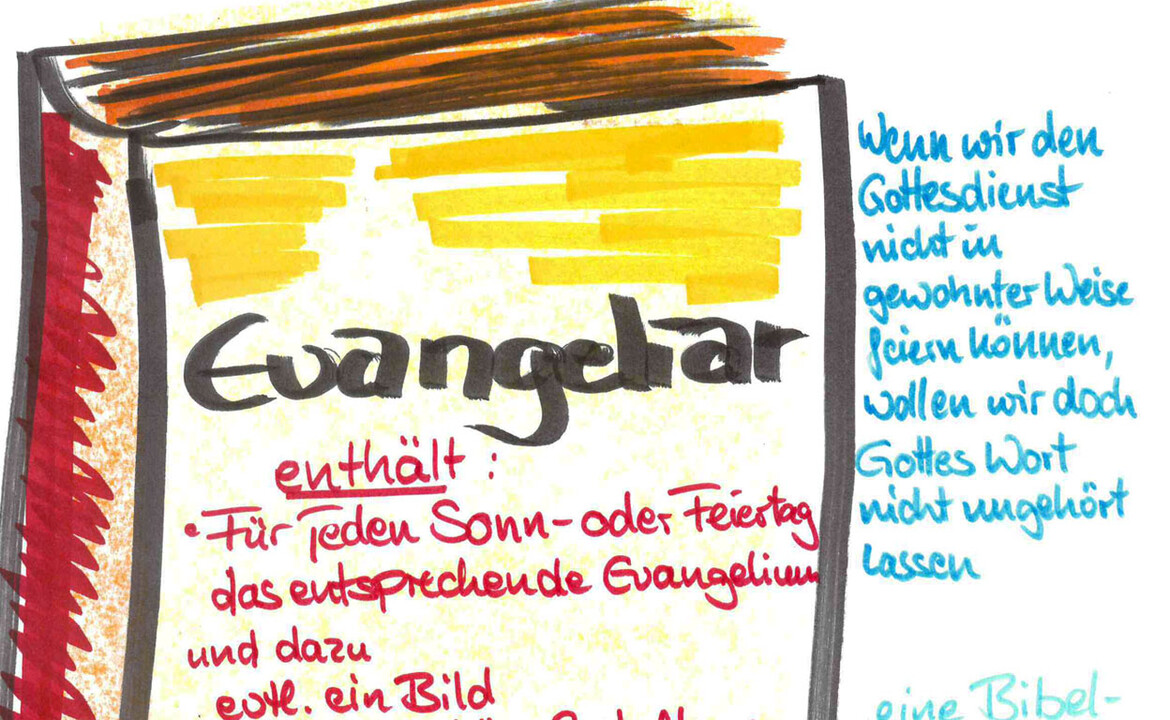 Evangeliar
enthält:
• Für jeden Sonn- oder Feiertag
das entsprechende Evangelium
und dazu
evtl. ein Bild
Wenn wir den
Gottesdienst
nicht in
gewohnter Weise
feiern können,
wollen wir doch
Gottes Wort
nicht ungehört
lassen
eine Bibel-